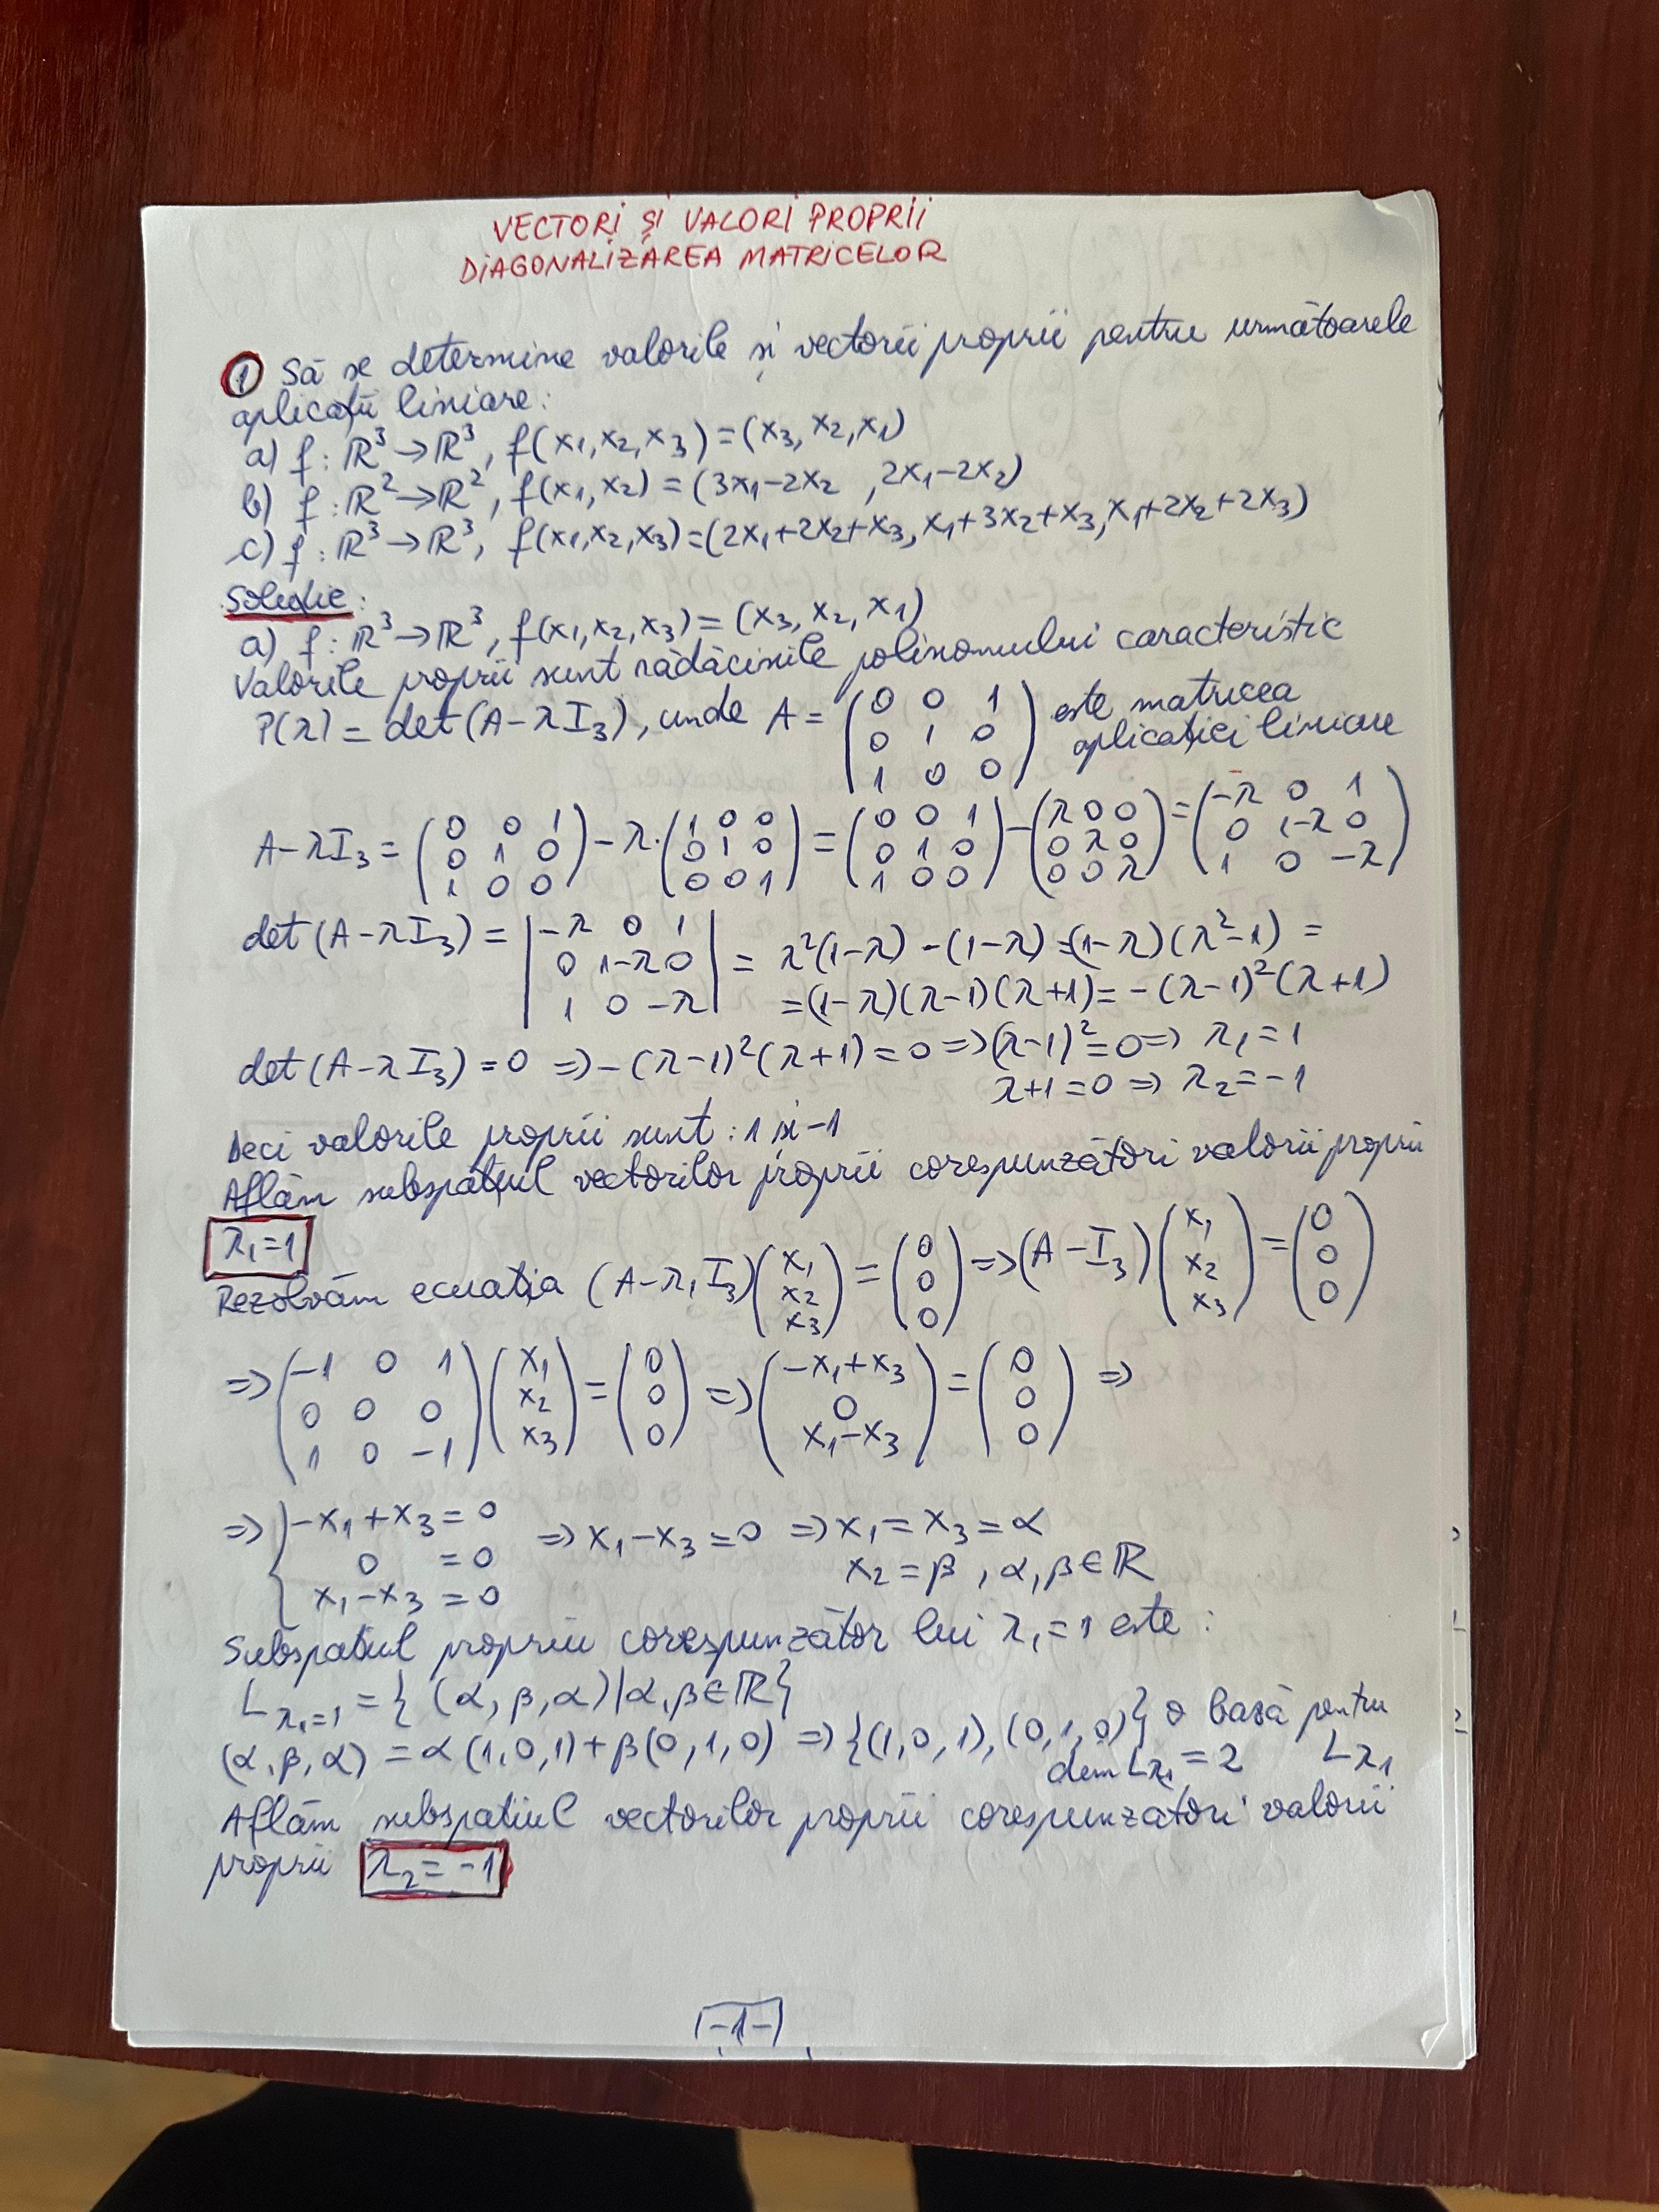 VECTORI ȘI VALORI PROPRII
DIAGONALIZAREA MATRICELOR
① Să se determine valorile și vectorii proprii pentru următoarele
aplicații liniare:
a) f: ℝ³→ℝ³, f(x₁,x₂,x₃)=(x₃,x₂,x₁)
b) f: ℝ²→ℝ², f(x₁,x₂)=(3x₁-2x₂ ,2x₁-2x₂)
c) f: ℝ³→ℝ³, f(x₁,x₂,x₃)=(2x₁+2x₂+x₃,x₁+3x₂+x₃,x₁+2x₂+2x₃)
Soluție:
a) f: ℝ³→ℝ³, f(x₁,x₂,x₃)=(x₃,x₂,x₁)
Valorile proprii sunt rădăcinile polinomului caracteristic
P(λ)=det(A-λI₃), unde A= (0 0 1 / 0 1 0 / 1 0 0) este matricea aplicației liniare
A-λI₃= (0 0 1 / 0 1 0 / 1 0 0) -λ· (1 0 0 / 0 1 0 / 0 0 1) = (0 0 1 / 0 1 0 / 1 0 0) - (λ 0 0 / 0 λ 0 / 0 0 λ) = (-λ 0 1 / 0 1-λ 0 / 1 0 -λ)
det(A-λI₃)= |-λ 0 1 / 0 1-λ 0 / 1 0 -λ| = λ²(1-λ)-(1-λ)=(1-λ)(λ²-1)=
=(1-λ)(λ-1)(λ+1)=-(λ-1)²(λ+1)
det(A-λI₃)=0 ⇒-(λ-1)²(λ+1)=0⇒(λ-1)²=0⇒ λ₁=1
λ+1=0 ⇒ λ₂=-1
Deci valorile proprii sunt: 1 și -1
Aflăm subspațiul vectorilor proprii corespunzători valorii proprii
λ₁=1
Rezolvăm ecuația (A-λ₁I₃) (x₁ / x₂ / x₃) = (0 / 0 / 0) ⇒(A-I₃) (x₁ / x₂ / x₃) = (0 / 0 / 0)
⇒ (-1 0 1 / 0 0 0 / 1 0 -1) (x₁ / x₂ / x₃) = (0 / 0 / 0) ⇒ (-x₁+x₃ / 0 / x₁-x₃) = (0 / 0 / 0) ⇒
⇒ { -x₁+x₃=0 ⇒x₁-x₃=0 ⇒x₁=x₃=α
0 =0 x₂=β, α,β∈ℝ
x₁-x₃=0
Subspatiul propriu corespunzător lui λ₁=1 este:
L_λ₁=1 ={ (α,β,α)|α,β∈ℝ}
(α,β,α)=α(1,0,1)+β(0,1,0) ⇒{(1,0,1),(0,1,0)} o bază pentru L_λ₁
dim L_λ₁=2
Aflăm subspațiul vectorilor proprii corespunzători valorii
proprii λ₂=-1
-1-